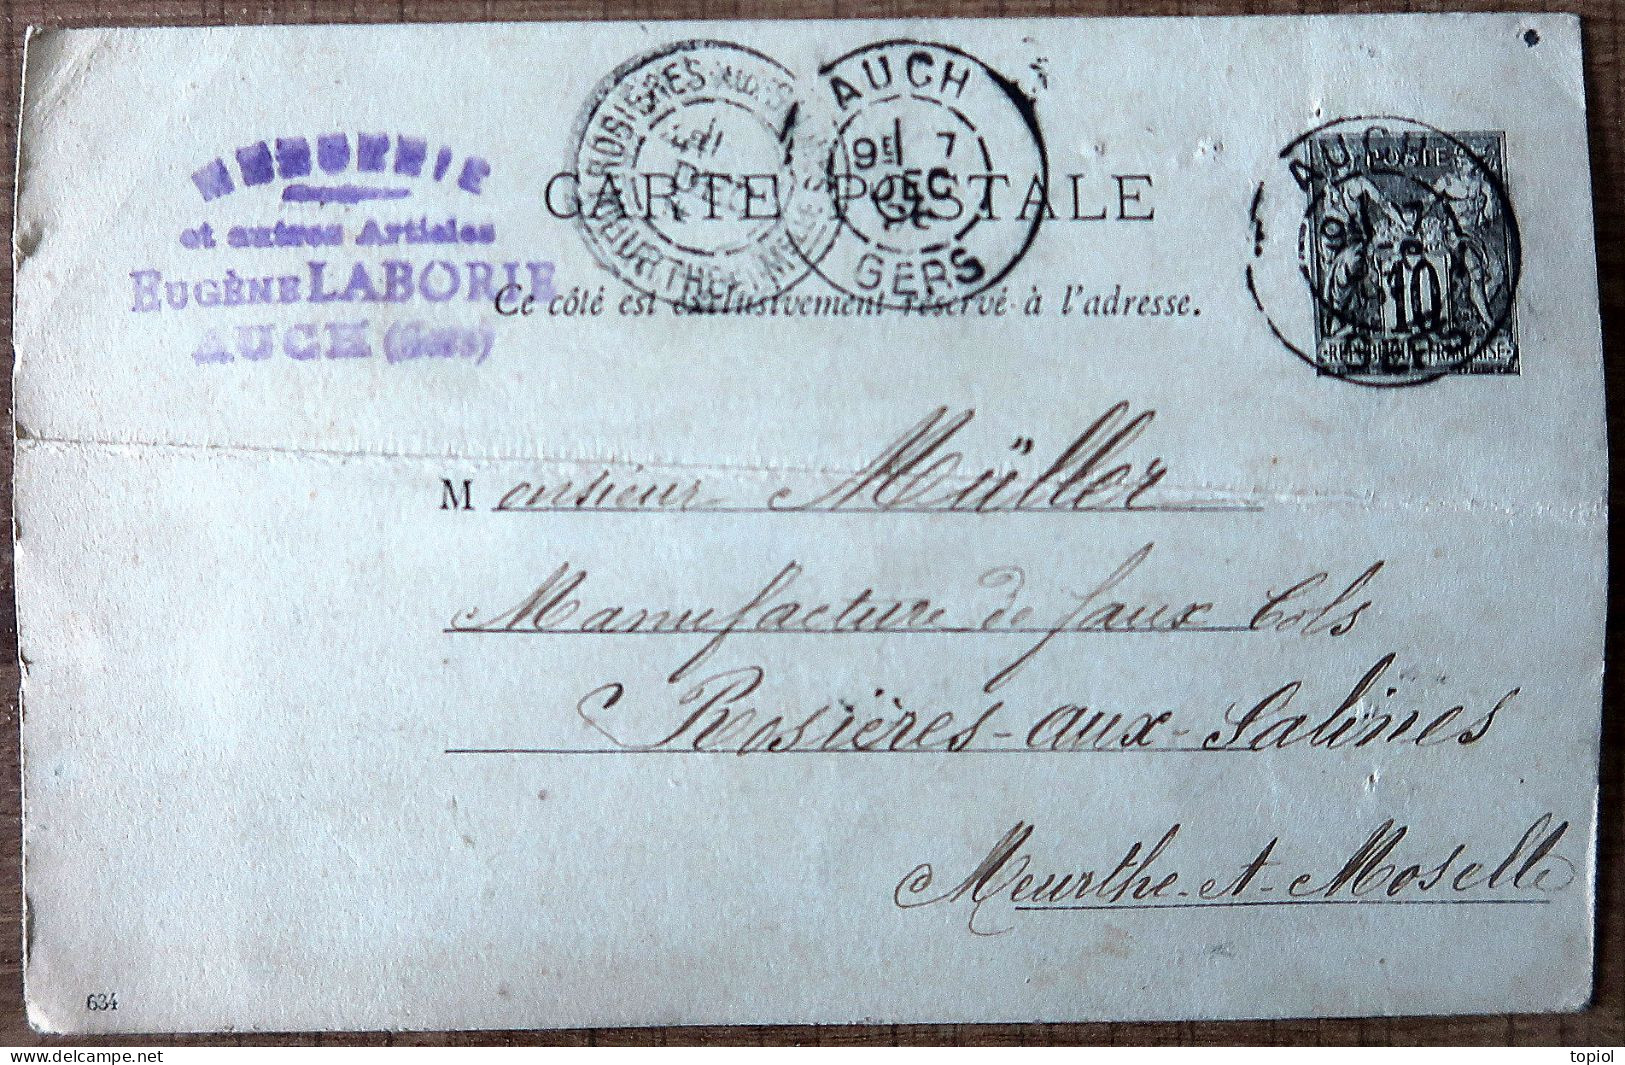 MERCERIE
et autres Articles
EUGÈNE LABORIE
AUCH (Gers)
ROSIERES AUX SALINES
MEURTHE-ET-MOSELLE
AUCH
9E 7
DEC
GERS
CARTE POSTALE
Ce côté est exclusivement réservé à l'adresse.
AUCH
9E 7
GERS
POSTES
10
REPUBLIQUE FRANÇAISE
Monsieur Müller
Manufacture de faux Cols
Rosières-aux-Salines
Meurthe-et-Moselle
634
delcampe.net
topiol